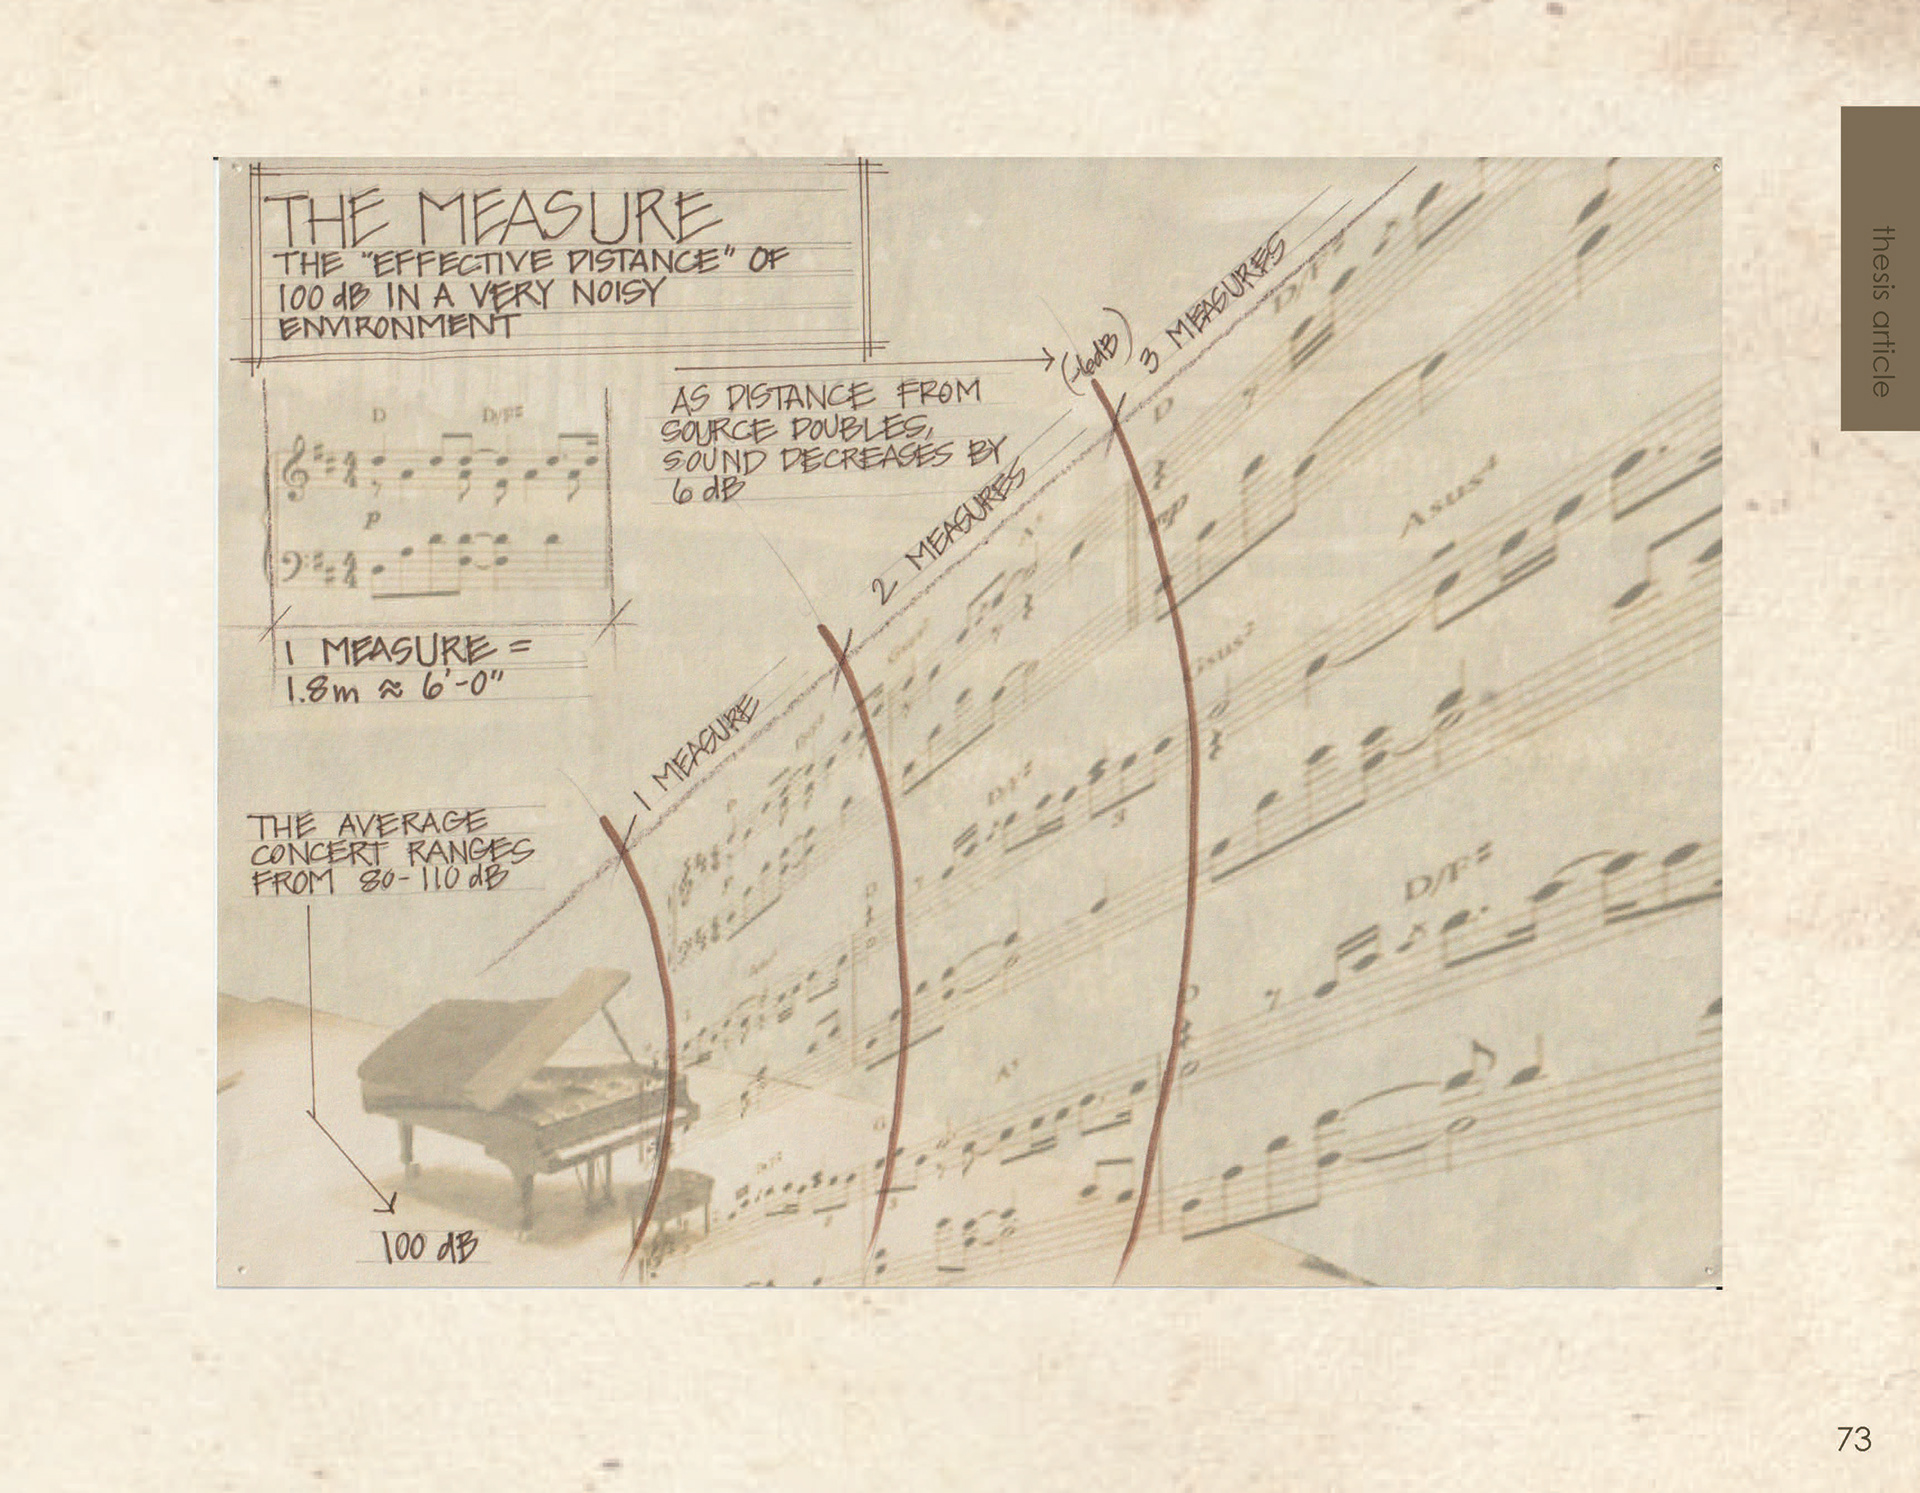 THE MEASURE
THE "EFFECTIVE DISTANCE" OF
100 dB IN A VERY NOISY
ENVIRONMENT
D D/F#
p
1 MEASURE =
1.8m ≈ 6'-0"
AS DISTANCE FROM
SOURCE DOUBLES,
SOUND DECREASES BY
6 dB
(-6dB)
3 MEASURES
2 MEASURES
1 MEASURE
THE AVERAGE
CONCERT RANGES
FROM 80-110 dB
100 dB
D/F#
D
mp
Asus⁴
D/F#
D/F#
3
thesis article
73